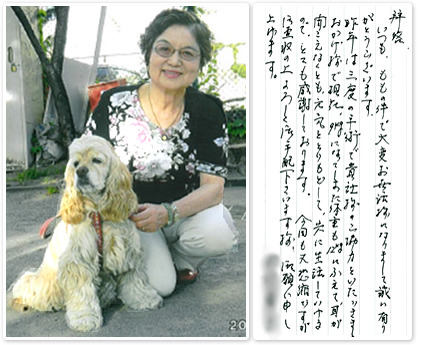 拝啓
いつも、もも缶で大変お世話になりまして誠に有り
がとうございます。
昨年は三度の手術で貴社様のご協力をいただきまして
おかげ様で現在、になってしまった体重もにふえて耳が
聞こえなくとも元気をとりもどして、共に生活している
ので、とても感謝しております。 今回も又恐縮ですが
ご査収の上よろしく御手配下さいます様、御願い申し
上げます。
20